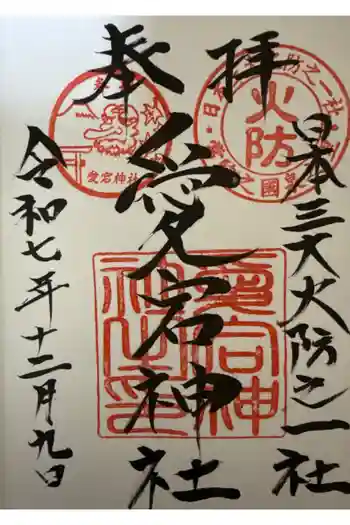 奉拝
日本三大火防之一社
愛宕神社
令和七年十二月九日
火防
愛宕神社
愛宕神
社之印